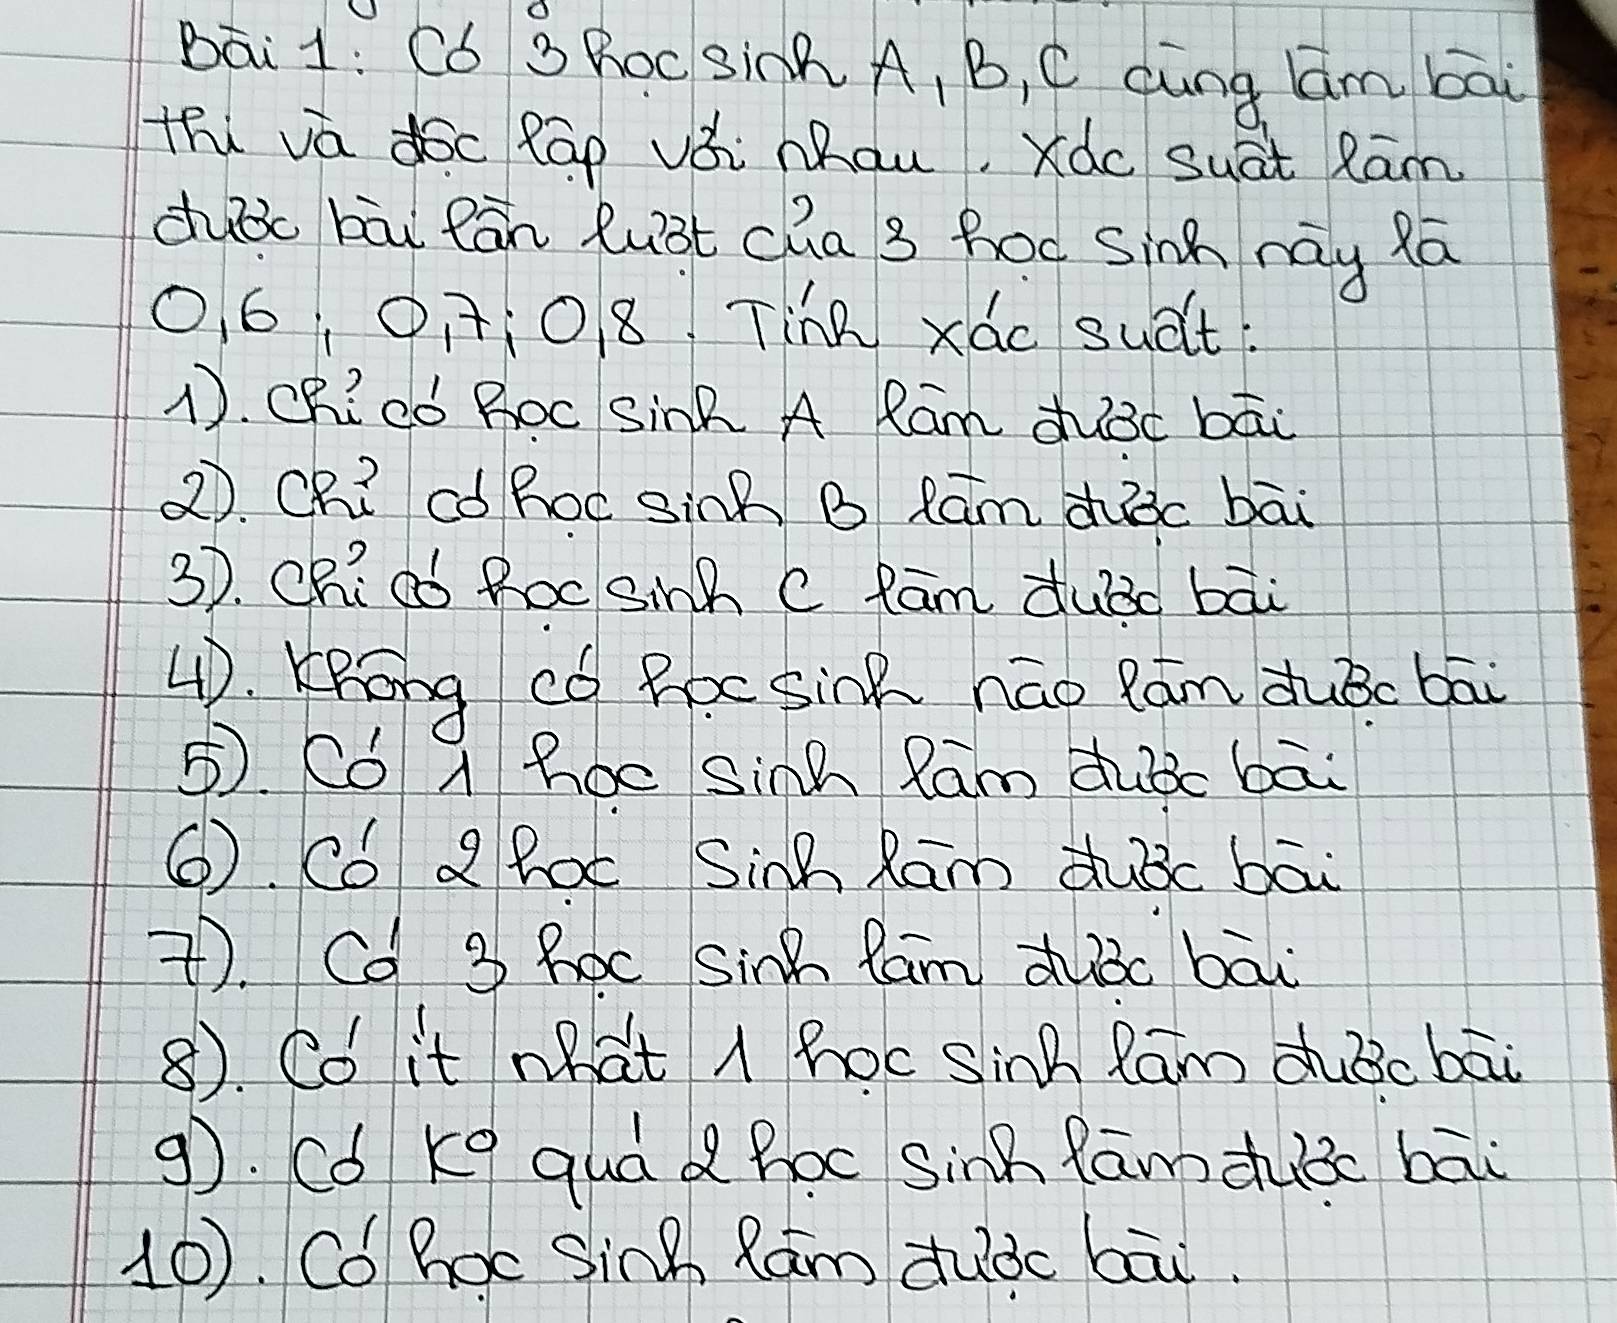 Bài 1: Có 3 học sinh A, B, C cùng làm bài
thi và độc lập với nhau. Xác suất làm
được bài lần lượt của 3 học sinh này là
0,6; 0,7; 0,8. Tính xác suất:
1). Chỉ có học sinh A làm được bài
2). Chỉ có học sinh B làm được bài
3). Chỉ có học sinh C làm được bài
4). Không có học sinh nào làm được bài
5). Có 1 học sinh làm được bài
6). Có 2 học sinh làm được bài
7). Có 3 học sinh làm được bài
8). Có ít nhất 1 học sinh làm được bài
9). Có K° quá 2 học sinh làm được bài
10). Có học sinh làm được bài.